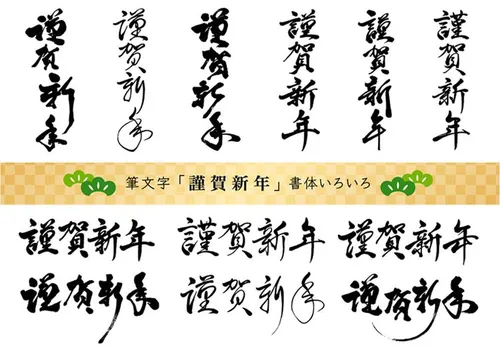 謹賀新年
謹賀新年
謹賀新年
謹賀新年
謹賀新年
謹賀新年
筆文字「謹賀新年」書体いろいろ
謹賀新年
謹賀新年
謹賀新年
謹賀新年
謹賀新年
謹賀新年